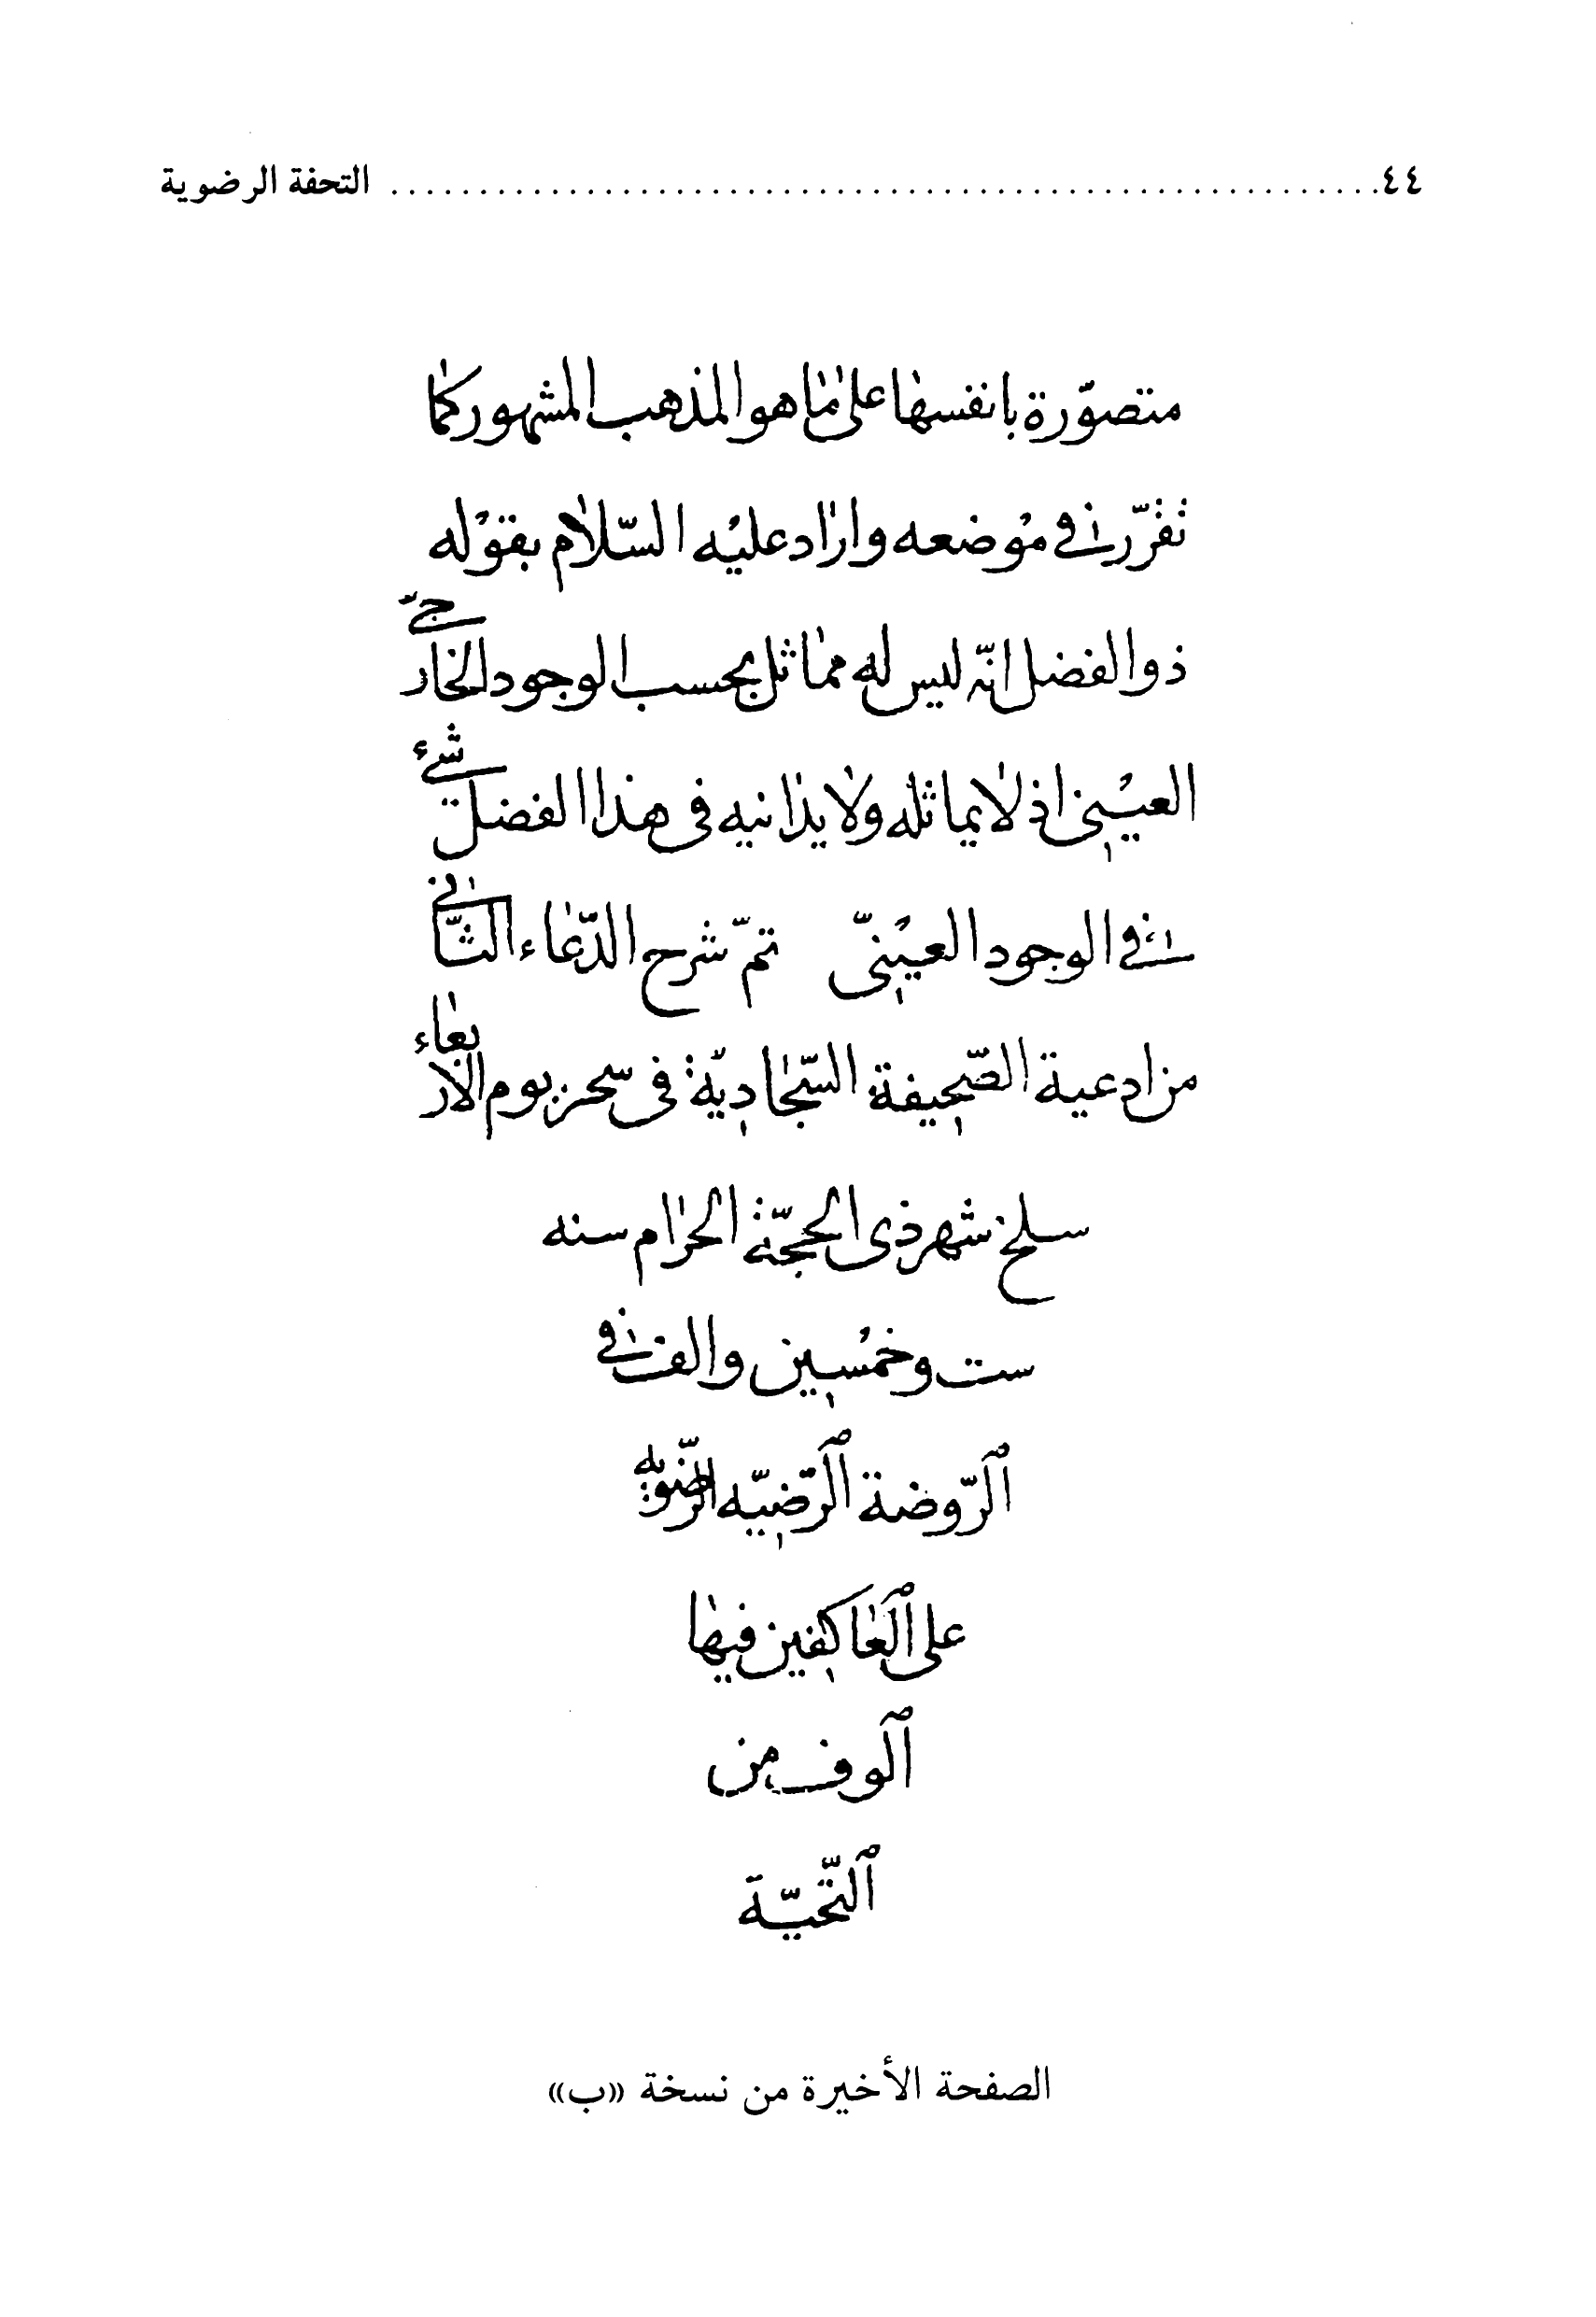 ٤٤ ........................................................ التحفة الرضوية
متصوّرة بانفسها على ما هو المذهب المشهور كما
تقرّر فى موضعه واراد عليه السّلام بقوله
ذو الفضل انّه ليس له مماثل بحسب الوجود الخارجىّ
العينى اذ لا يماثله ولا يدانيه فى هذا الفضل شئ
فى الوجود العينىّ تمّ شرح الدّعاء الثّانى
من ادعية الصّحيفة السّجاديّة فى سحر يوم الاربعاء
سلخ شهر ذى الحجّة الحرام سنه
ست وخمسين والف فى
الرّوضة الرّضيّه الرّضويّه
على العاكفين فيها
الوف من
التّحيّة
الصفحة الأخيرة من نسخة «ب»